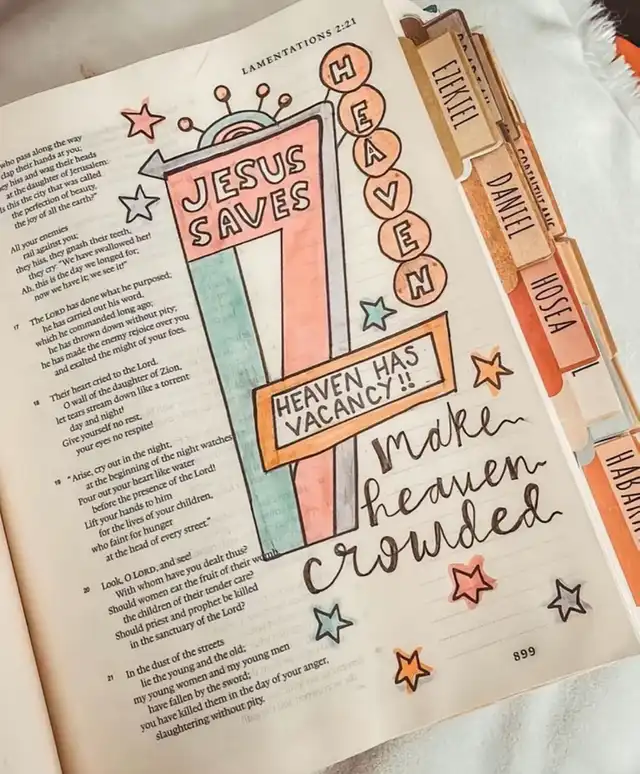 LAMENTATIONS 2:21
who pass along the way
clap their hands at you;
they hiss and wag their heads
at the daughter of Jerusalem:
"Is this the city that was called
the perfection of beauty,
the joy of all the earth?"
All your enemies
rail against you;
they hiss, they gnash their teeth,
they cry: "We have swallowed her!
Ah, this is the day we longed for;
now we have it; we see it!"
17 The LORD has done what he purposed;
he has carried out his word,
which he commanded long ago;
he has thrown down without pity;
he has made the enemy rejoice over you
and exalted the might of your foes.
18 Their heart cried to the Lord.
O wall of the daughter of Zion,
let tears stream down like a torrent
day and night!
Give yourself no rest,
your eyes no respite!
19 "Arise, cry out in the night,
at the beginning of the night watches!
Pour out your heart like water
before the presence of the Lord!
Lift your hands to him
for the lives of your children,
who faint for hunger
at the head of every street."
20 Look, O LORD, and see!
With whom have you dealt thus?
Should women eat the fruit of their womb,
the children of their tender care?
Should priest and prophet be killed
in the sanctuary of the Lord?
21 In the dust of the streets
lie the young and the old;
my young women and my young men
have fallen by the sword;
you have killed them in the day of your anger,
slaughtering without pity.
JESUS
SAVES
HEAVEN
HEAVEN HAS
VACANCY!!
make
heaven
crowded
899
EZEKIEL
DANIEL
HOSEA